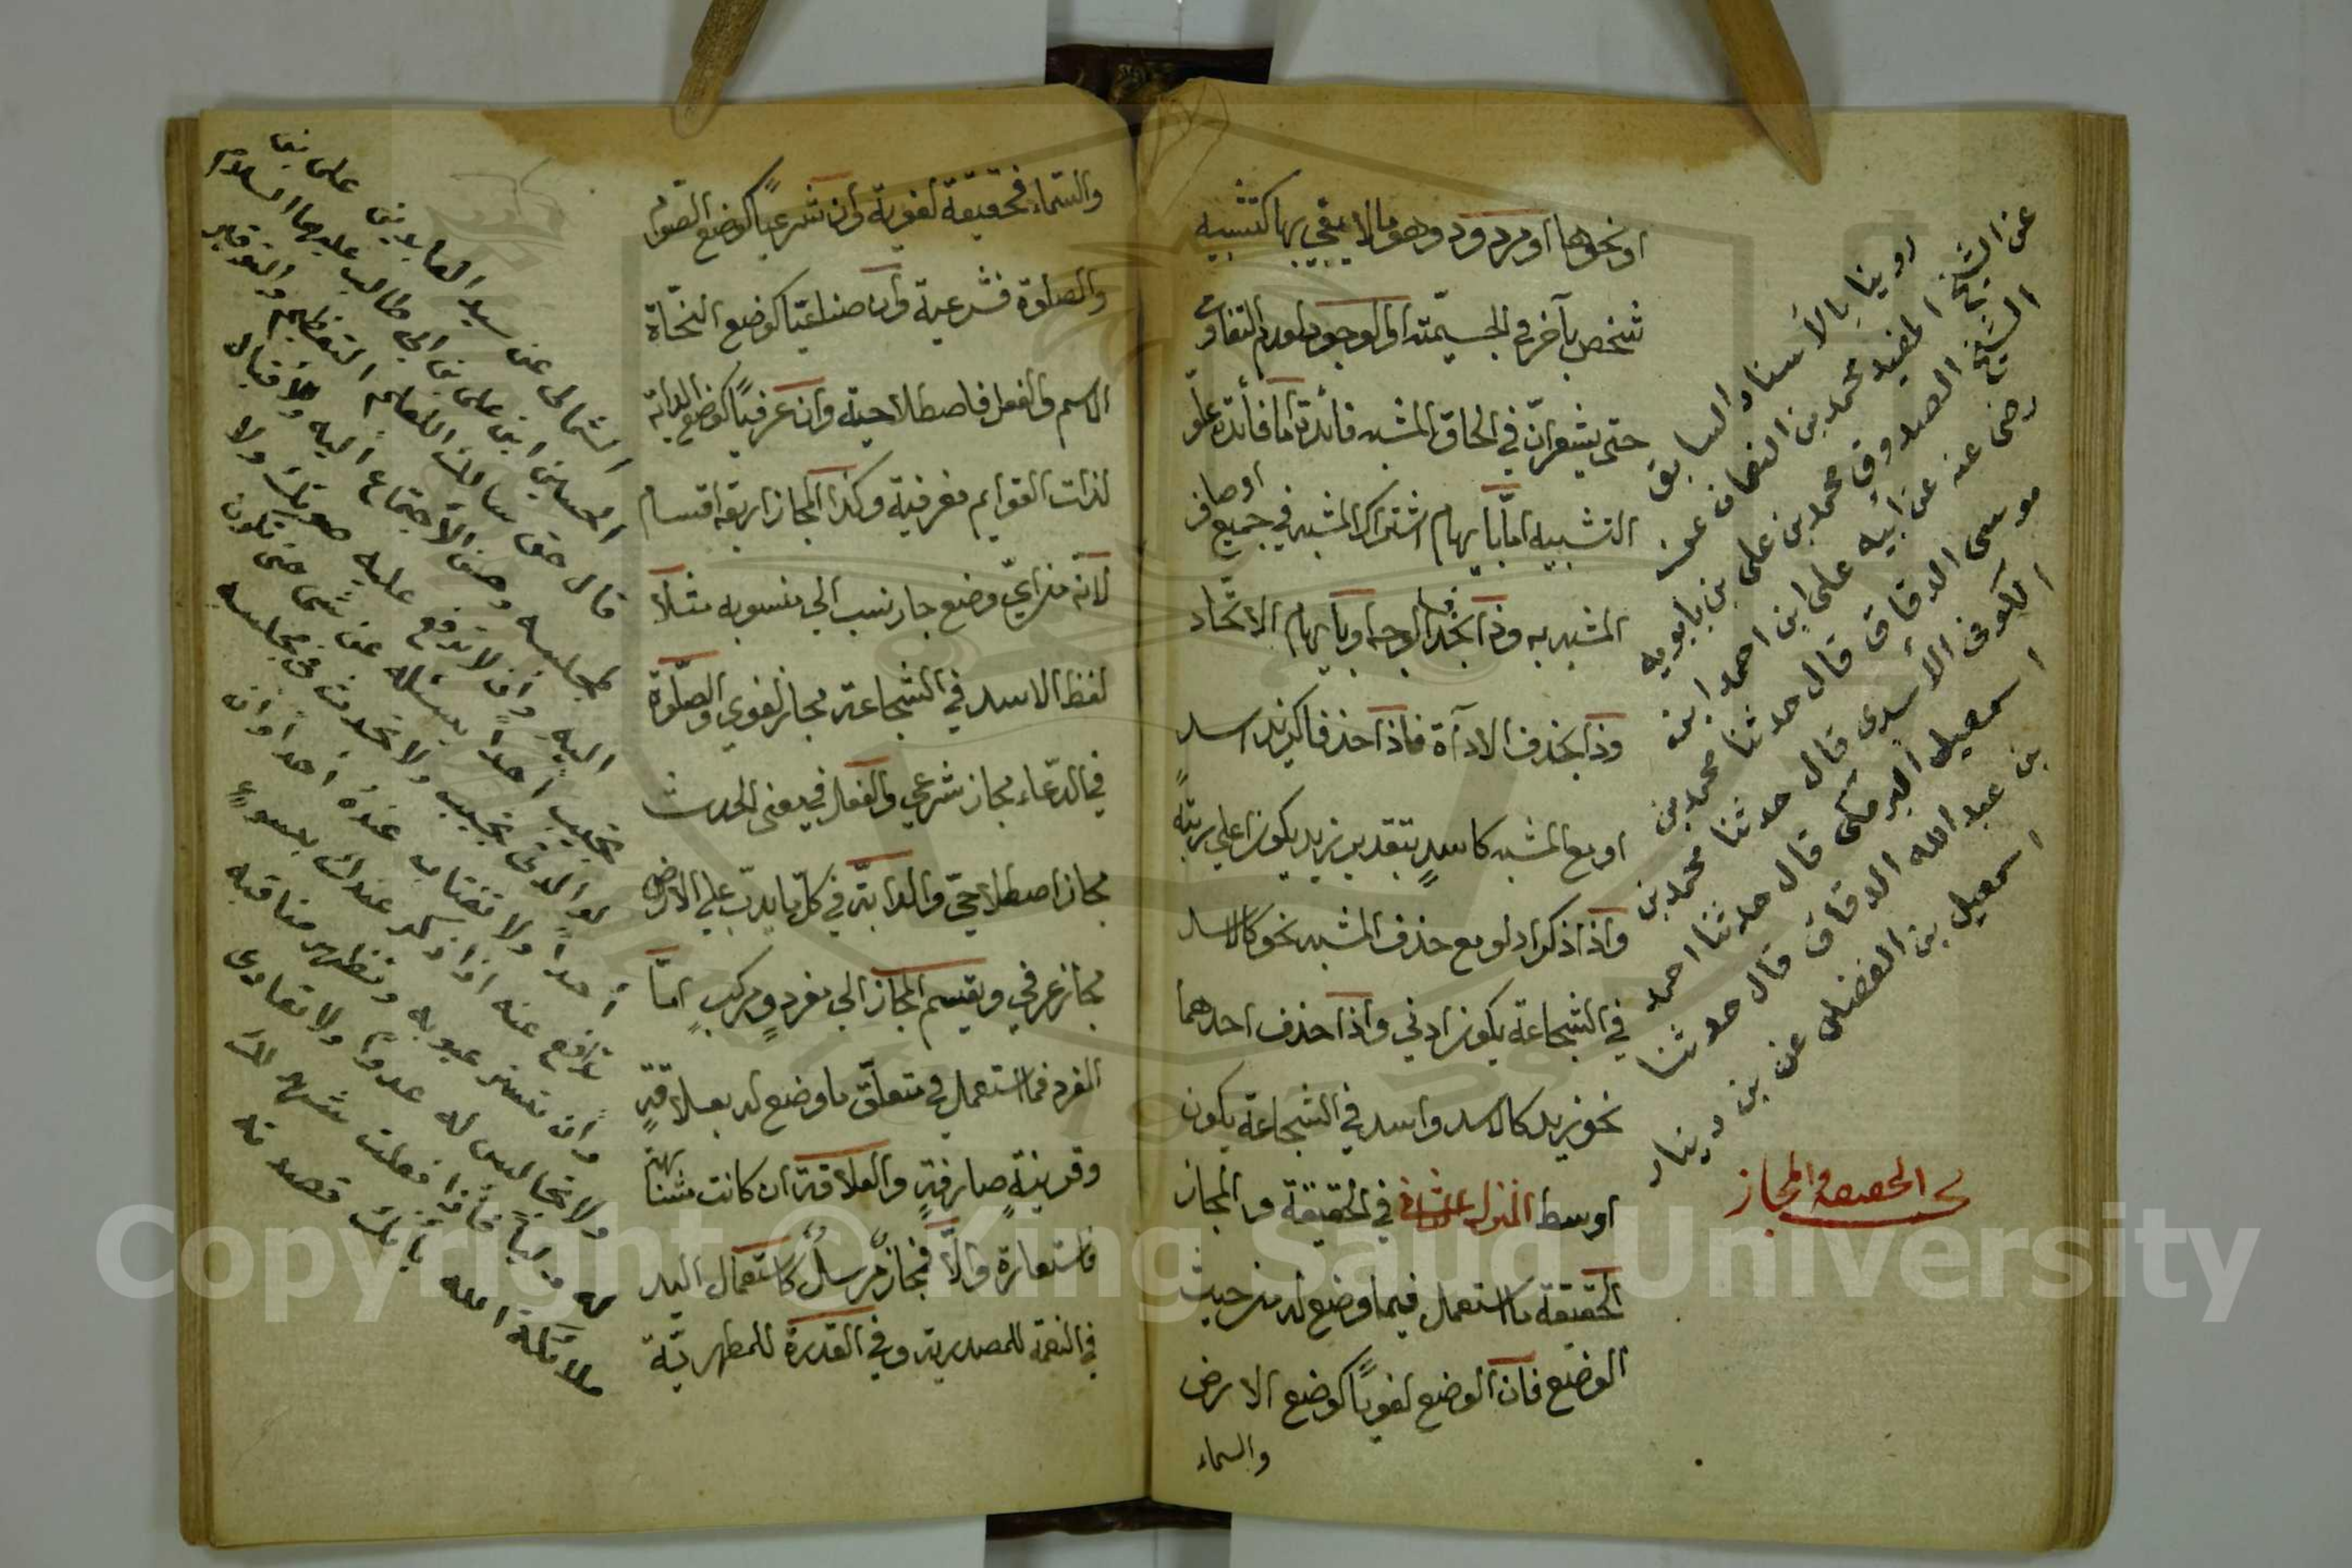 او نحوها او مردود وهو ما لا يفي بها كتشبيه
شخص بآخر في الجسيمته او الوجود لعدم التفاوت
حتى يشعر انّ في الحاق المشبه فائدة اما فائدة علّو
التشبيه امّا بايهام اشتراك المشبه في جميع اوصاف
المشبه به وذا بحذف الوجه او بايهام الاتّحاد
وذا بحذف الادآة فاذا حذفا كزيد اسد
او مع المشبه كاسدٍ بتقدير زيد يكون اعلي مرتبةً
واذا ذكرا ولو مع حذف المشبه نحو كالاسد
في الشجاعة يكون ادني واذا حذف احدهما
نحو زيد كالاسد واسد في الشجاعة يكون
اوسط المنزل الثاني في الحقيقة والمجاز
الحقيقة ما استعمل فيما وضع له من حيث
الوضع فان الوضع لغويًا كوضع الارض
والسماء
روينا بالأسناد السابق
عن الشيخ المفيد محمد بن النعمان عن
الشيخ الصدوق محمد بن علي بن بابويه
رضى عنه عن أبيه علي ابن احمد ابن
موسى الدقاق قال حدثنا محمد بن
الكوفى الأسدى قال حدثنا محمد بن
اسمعيل البرمكى قال حدثنا احمد
بن عبد الله الدقاق قال حدثنا
اسمعيل بن الفضل عن بن دينار
الحقيقه والمجاز
والسماء فحقيقة لغوية وان شرعيًا كوضع الصّوم
والصلوة فشرعية وان صناعيّا كوضع النحّاة
الاسم والفعل فاصطلاحية وان عرفيًا كوضع الدابّة
لذات القوايم فعرفية وكذا المجاز اربعة اقسام
لانّه من ايّ وضع جاز نسب الي منسوبه مثلًا
لفظ الاسد في الشجاعة مجاز لغوي والصلّوة
في الدعاء مجاز شرعي والفعل في معنى الحدث
مجاز اصطلاحيّ والدابّة في كلّ ما يدبّ علي الارض
مجاز عرفي ويقسم المجاز الي مفردٍ ومركبٍ امّا
المفرد فما استعمل في متعلّق ما وضع له بعلاقةٍ
وقرينةٍ صارفةٍ والعلاقة ان كانت مشابهة
فاستعارة والّا فمجاز مّرسلٌ كاستعمال اليد
في النعمة للمصدرية وفي القدرة للمظهريّة
الثمالى عن سيد العابدين على بن
الحسين ابن على بن ابى طالب عليهما السلام
قال حق سائسك العلم التعظيم والتوقير
لمجلسه وحسن الأجتماع اليه والأقبال
اليه وان لا ترفع عليه صوتك ولا
تجيب أحداً يسئله عن شى حتى تكون
هو الذى يجيب ولا تحدث فى مجلسه
أحداً ولا تغتاب عنده أحداً وان
تدافع عنه اذا ذكر عندك بسوءٍ
وان تستر عيوبه وتظهر مناقبه
ولا تجالس له عدواً ولا تعادى
له ولياً فأذا فعلت شهد لك
ملائكة الله بأنك قصدته